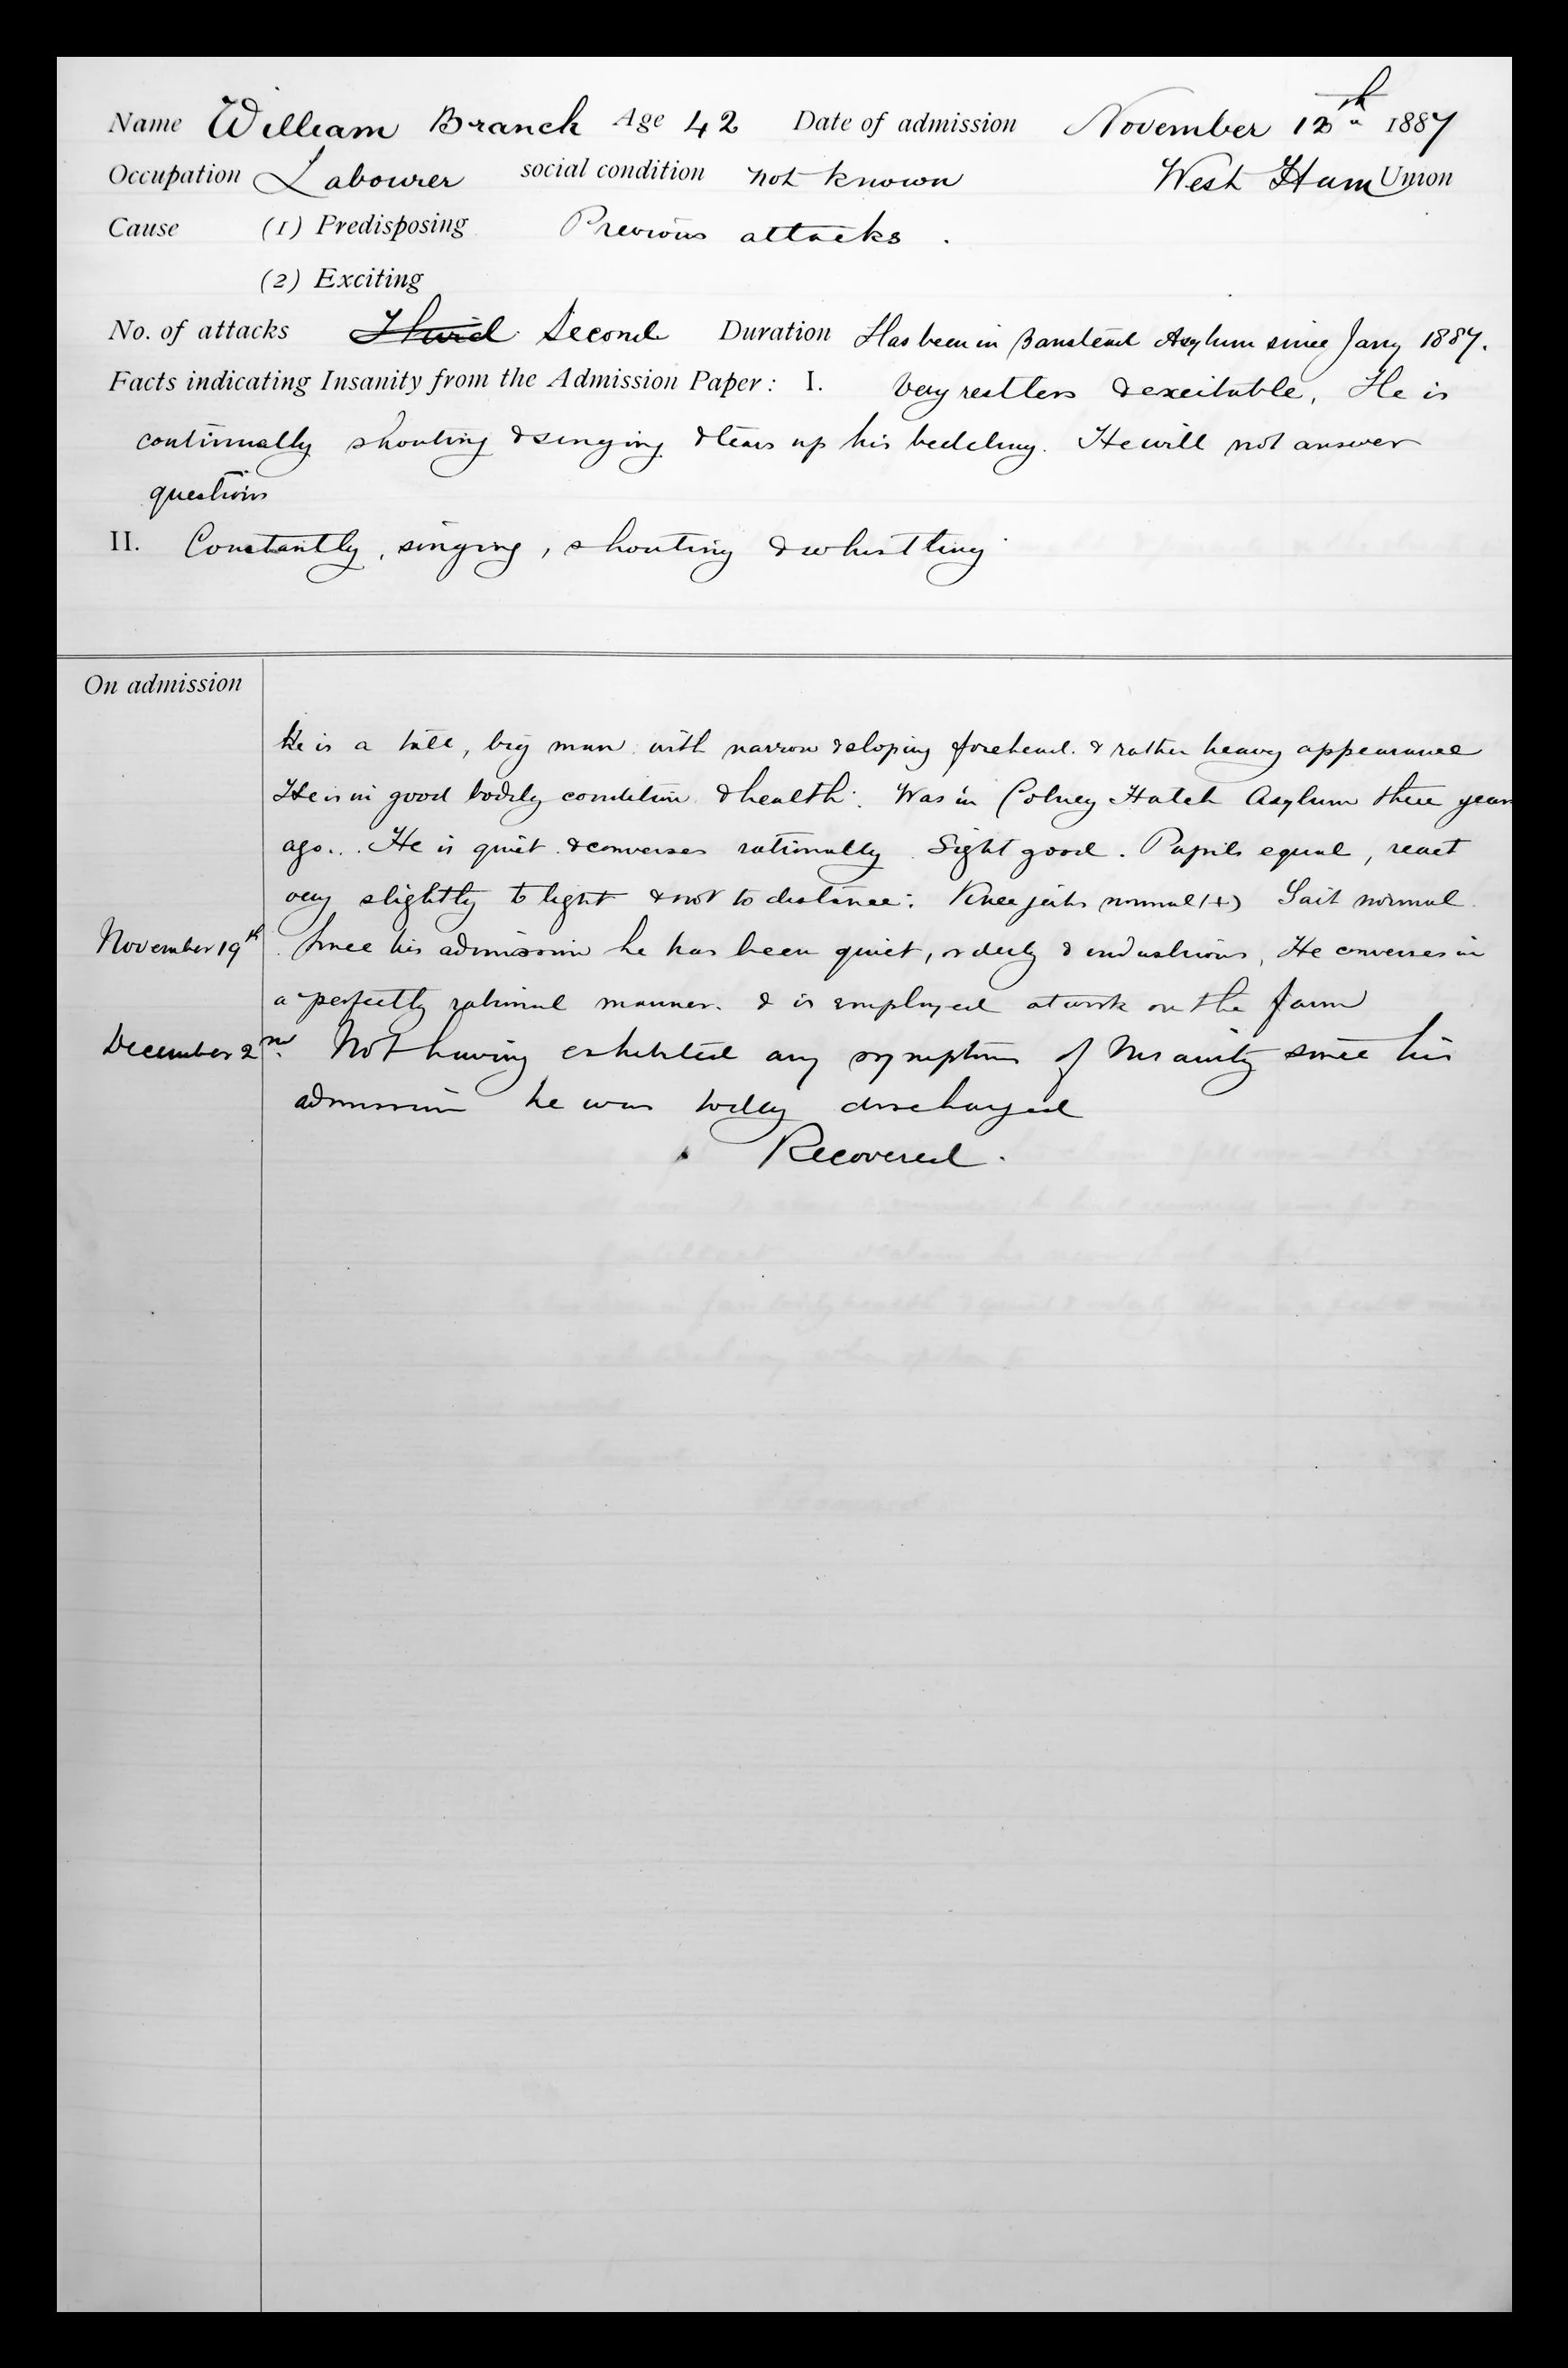 Name William Branch Age 42 Date of admission November 12th 1887
Occupation Labourer social condition not known West Ham Union
Cause (1) Predisposing Previous attacks.
(2) Exciting
No. of attacks Third Second Duration Has been in Banstead Asylum since Jany 1887.
Facts indicating Insanity from the Admission Paper: I. Very restless & excitable, He is
continually shouting & singing & tears up his bedding. He will not answer
questions
II. Constantly, singing, shouting & whistling
On admission
He is a tall, big man with narrow & sloping forehead. & rather heavy appearance
He is in good bodily condition & health. Was in Colney Hatch Asylum three years
ago... He is quiet & converses rationally. Sight good. Pupils equal, react
very slightly to light & not to distance: Knee jerks normal (+) Gait normal.
November 19th. Since his admission he has been quiet, orderly & industrious, He converses in
a perfectly rational manner. & is employed at work on the farm
December 2nd. Not having exhibited any symptoms of Insanity since his
admission he was today discharged
Recovered.